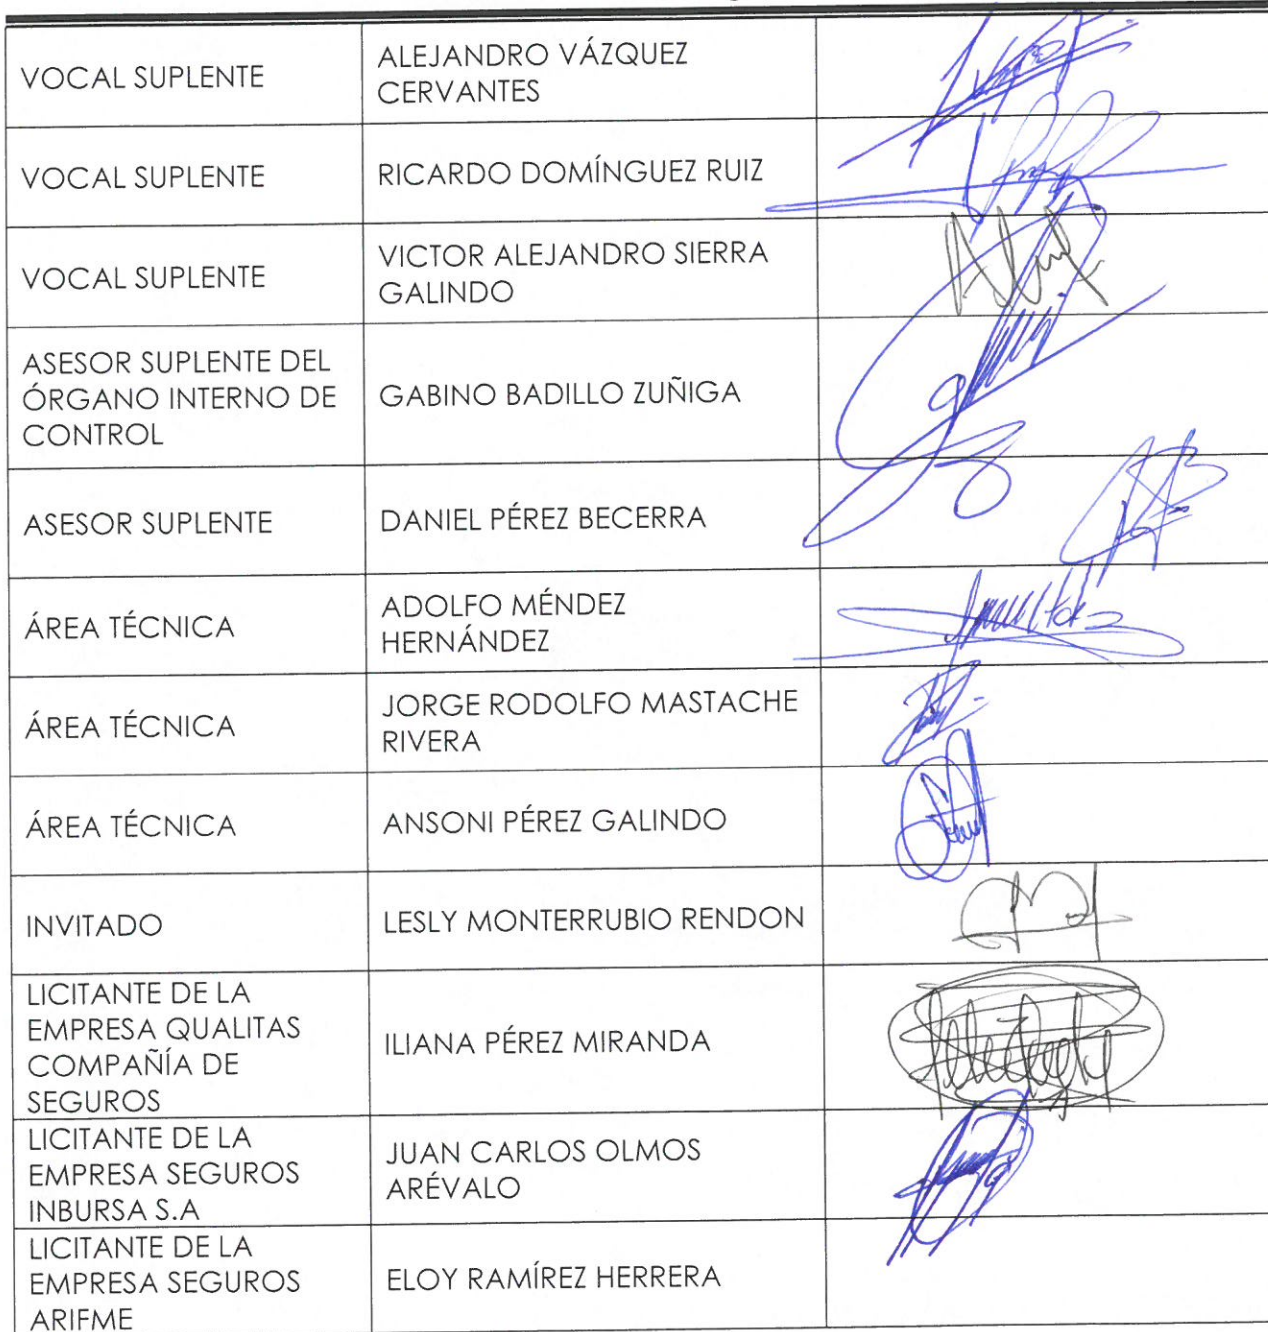 VOCAL SUPLENTE
ALEJANDRO VÁZQUEZ
CERVANTES
VOCAL SUPLENTE
RICARDO DOMÍNGUEZ RUIZ
VOCAL SUPLENTE
VICTOR ALEJANDRO SIERRA
GALINDO
ASESOR SUPLENTE DEL
ÓRGANO INTERNO DE
CONTROL
GABINO BADILLO ZUÑIGA
ASESOR SUPLENTE
DANIEL PÉREZ BECERRA
ÁREA TÉCNICA
ADOLFO MÉNDEZ
HERNÁNDEZ
ÁREA TÉCNICA
JORGE RODOLFO MASTACHE
RIVERA
ÁREA TÉCNICA
ANSONI PÉREZ GALINDO
INVITADO
LESLY MONTERRUBIO RENDON
LICITANTE DE LA
EMPRESA QUALITAS
COMPAÑÍA DE
SEGUROS
ILIANA PÉREZ MIRANDA
LICITANTE DE LA
EMPRESA SEGUROS
INBURSA S.A
JUAN CARLOS OLMOS
ARÉVALO
LICITANTE DE LA
EMPRESA SEGUROS
ARIFME
ELOY RAMÍREZ HERRERA